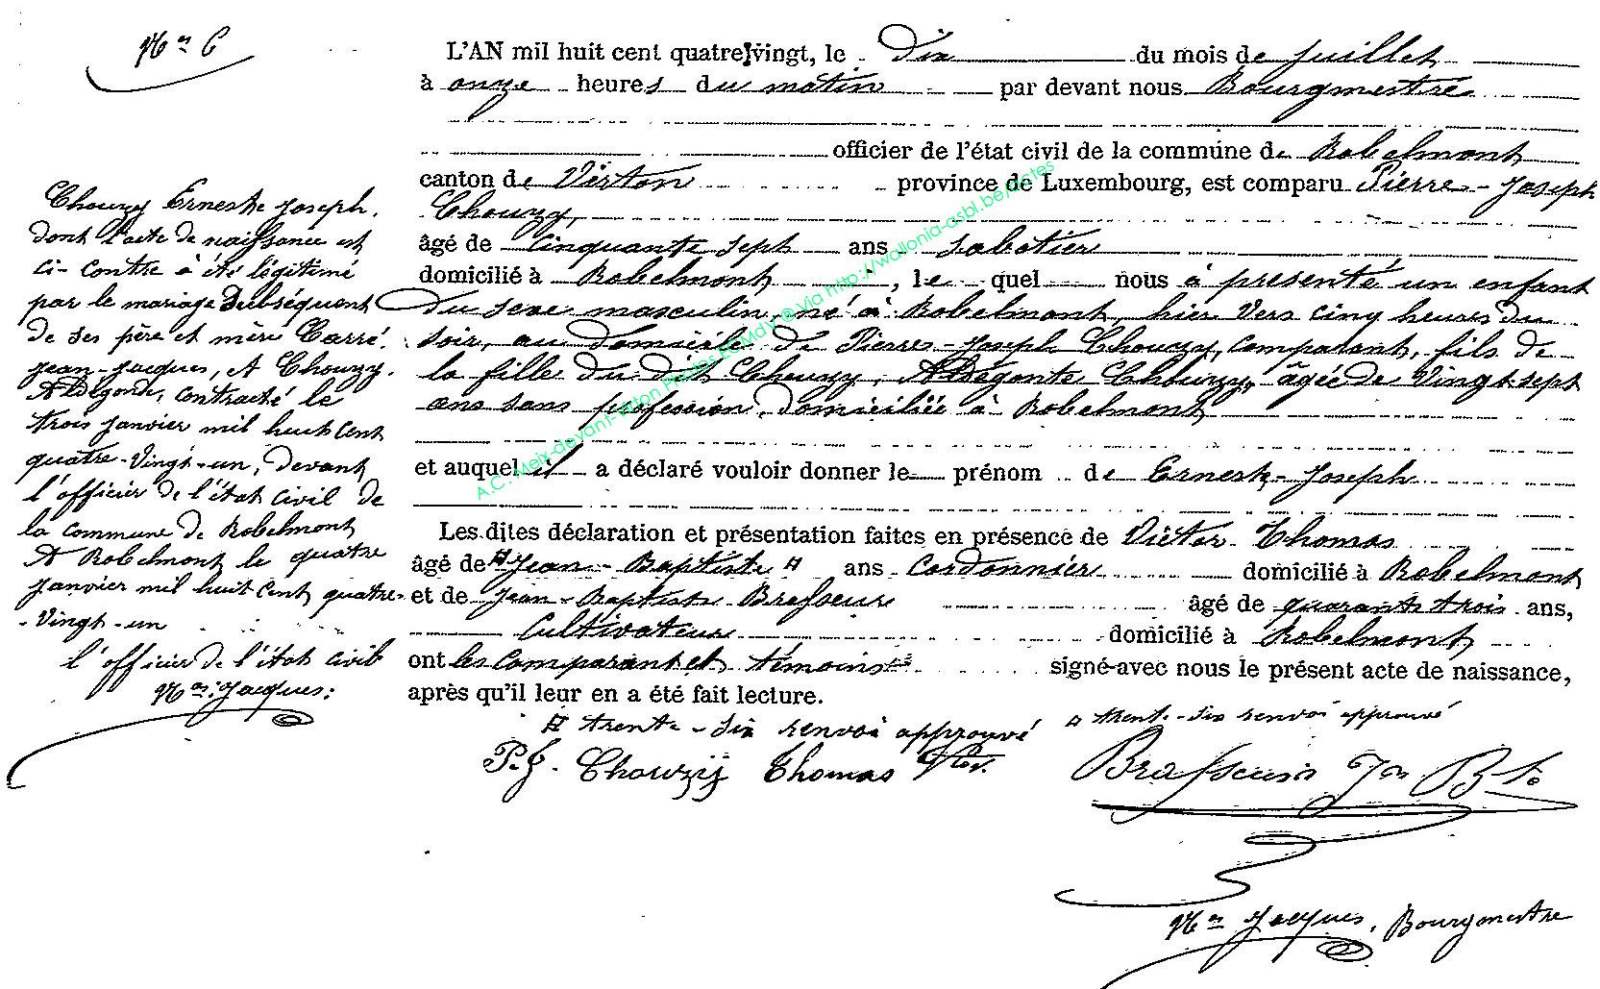 L'AN mil huit cent quatre-vingt, le dix du mois de juillet
à onze heures du matin par devant nous Bourgmestre
officier de l'état civil de la commune de Robelmont
canton de Virton province de Luxembourg, est comparu Pierre-Joseph
Chouzy,
âgé de cinquante sept ans sabotier
domicilié à Robelmont, le quel nous à presenté un enfant
du sexe masculin, né à Robelmont, hier vers cinq heures du
soir, au domicile de Pierre-Joseph Chouzy, comparant, fils de
la fille du dit Chouzy, Aldegonte Chouzy, âgée de vingt-sept
ans sans profession, domiciliée à Robelmont
et auquel il a déclaré vouloir donner le prénom de Erneste-Joseph
Les dites déclaration et présentation faites en présence de Victor Thomas
âgé de Jean-Baptiste ans Cordonnier domicilié à Robelmont
et de Jean-Baptiste Brasseur âgé de quarante trois ans,
Cultivateur domicilié à Robelmont
ont les comparant et témoins signé avec nous le présent acte de naissance,
après qu'il leur en a été fait lecture.
trente-six renvoi approuvé
trente-six renvoi approuvé
P. J. Chouzij Thomas Vor.
Brasseur Jn Bte
Jacques, Bourgmestre
Chouzy Erneste Joseph.
dont l'acte de naissance est
ci-contre à été légitimé
par le mariage subséquent
de ses père et mère Carré.
Jean-Jacques, et Chouzy.
Aldegonte, contracté le
trois janvier mil huit cent
quatre-vingt-un, devant
l'officier de l'état civil de
la commune de Robelmont
A Robelmont le quatre
janvier mil huit cent quatre-
-vingt-un
l'officier de l'état civil
Jacques:
A.C. Meix-devant-Virton Photos EGMdV@Via http://wallonia-asbl.be/actes